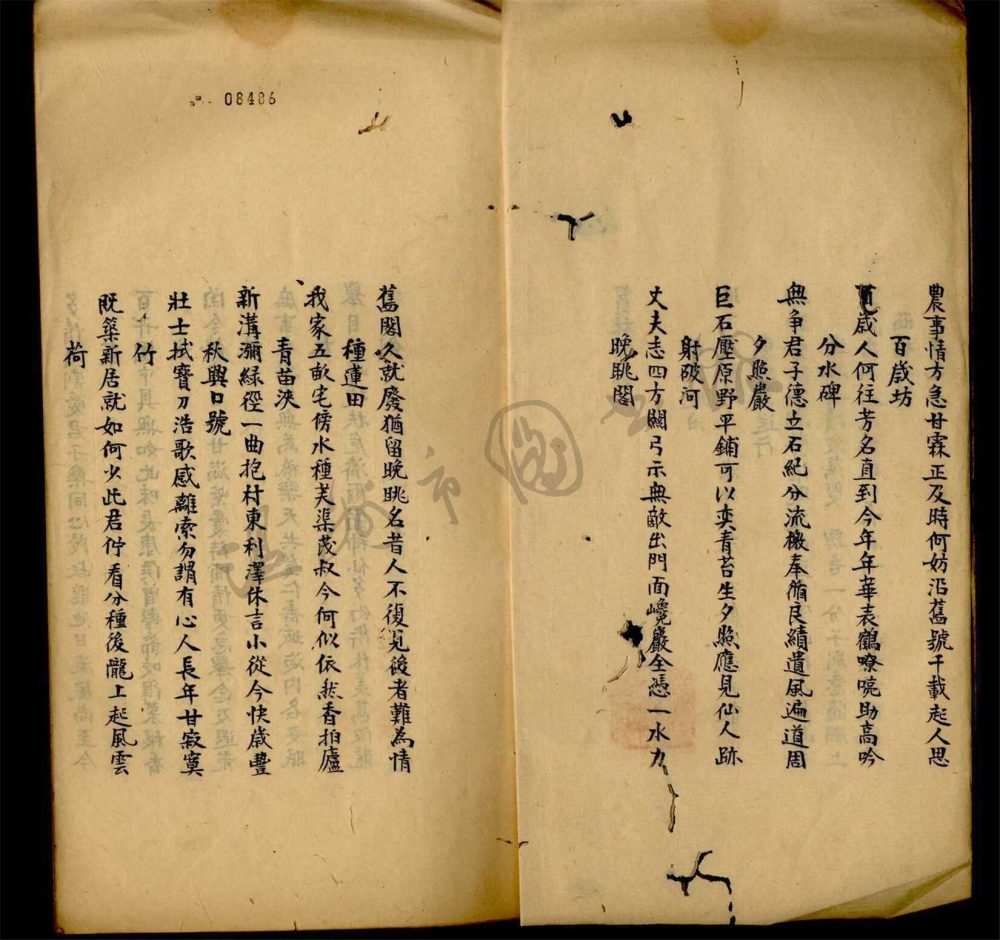 農事情方急甘霖正及時何妨沿舊號千載起人思
百歲坊
百歲人何往芳名直到今年年華表鶴嘹喨助高吟
分水碑
無爭君子德立石紀分流檄奉循良績遺風遍道周
夕照巖
巨石壓原野平鋪可以奕青苔生夕照應見仙人跡
射破河
丈夫志四方關弓示無敵出門面巉巖全憑一水力
晚眺閣
08486
舊閣久就廢猶留晚眺名昔人不復見後者難為情
種蓮田
我家五畝宅傍水種芙渠茂叔今何似依然香拍廬
青苗浹
新溝瀰綠徑一曲抱村東利澤休言小從今快歲豐
秋興口號
壯士拭寶刀浩歌感離索勿謂有心人長年甘寂寞
竹
既築新居就如何少此君佇看分種後隴上起風雲
荷